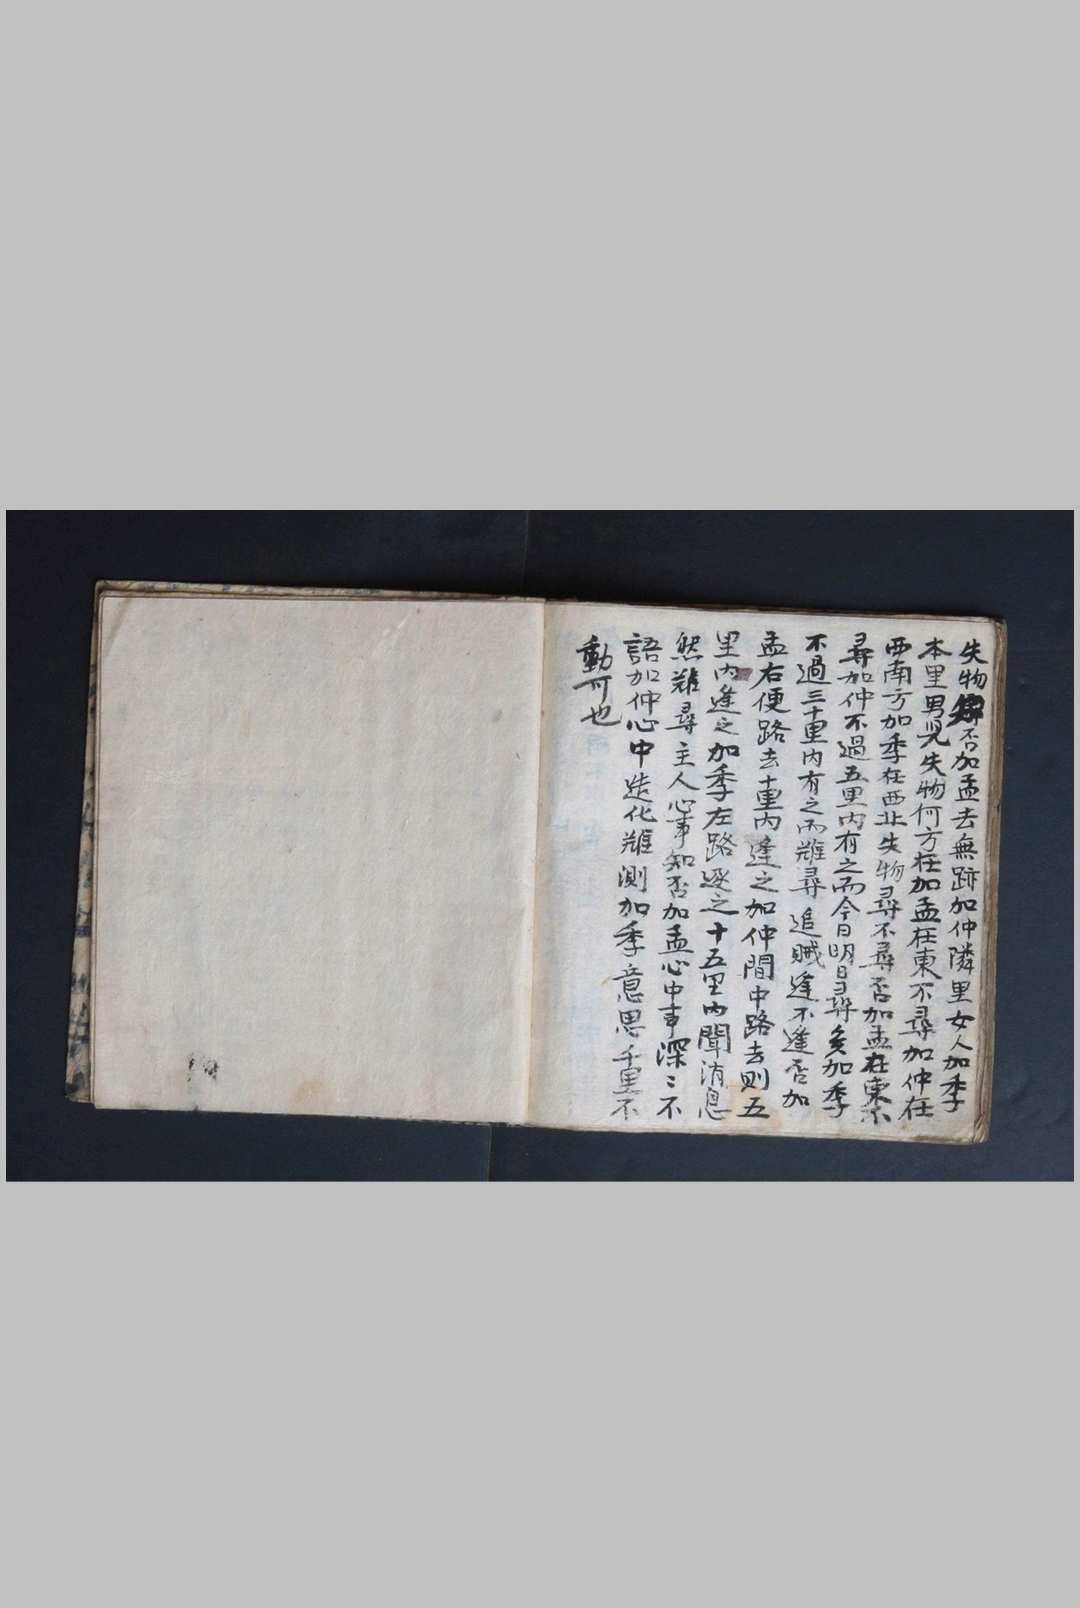 失物 否加孟去無跡加仲隣里女人加季
本里男児失物何方在加孟在東不尋加仲在
西南方加季在西北失物尋不尋否加孟在東不
尋加仲不過五里內有之而今日明日尋矣加季
不過三十里內有之而難尋追賊逢不逢否加
孟右便路去十里內逢之加仲間中路去則五
里內逢之加季左路逐之十五里內聞消息
然難尋主人心事知否加孟心中事深〻不
語加仲心中造化難測加季意思千里不
動可也